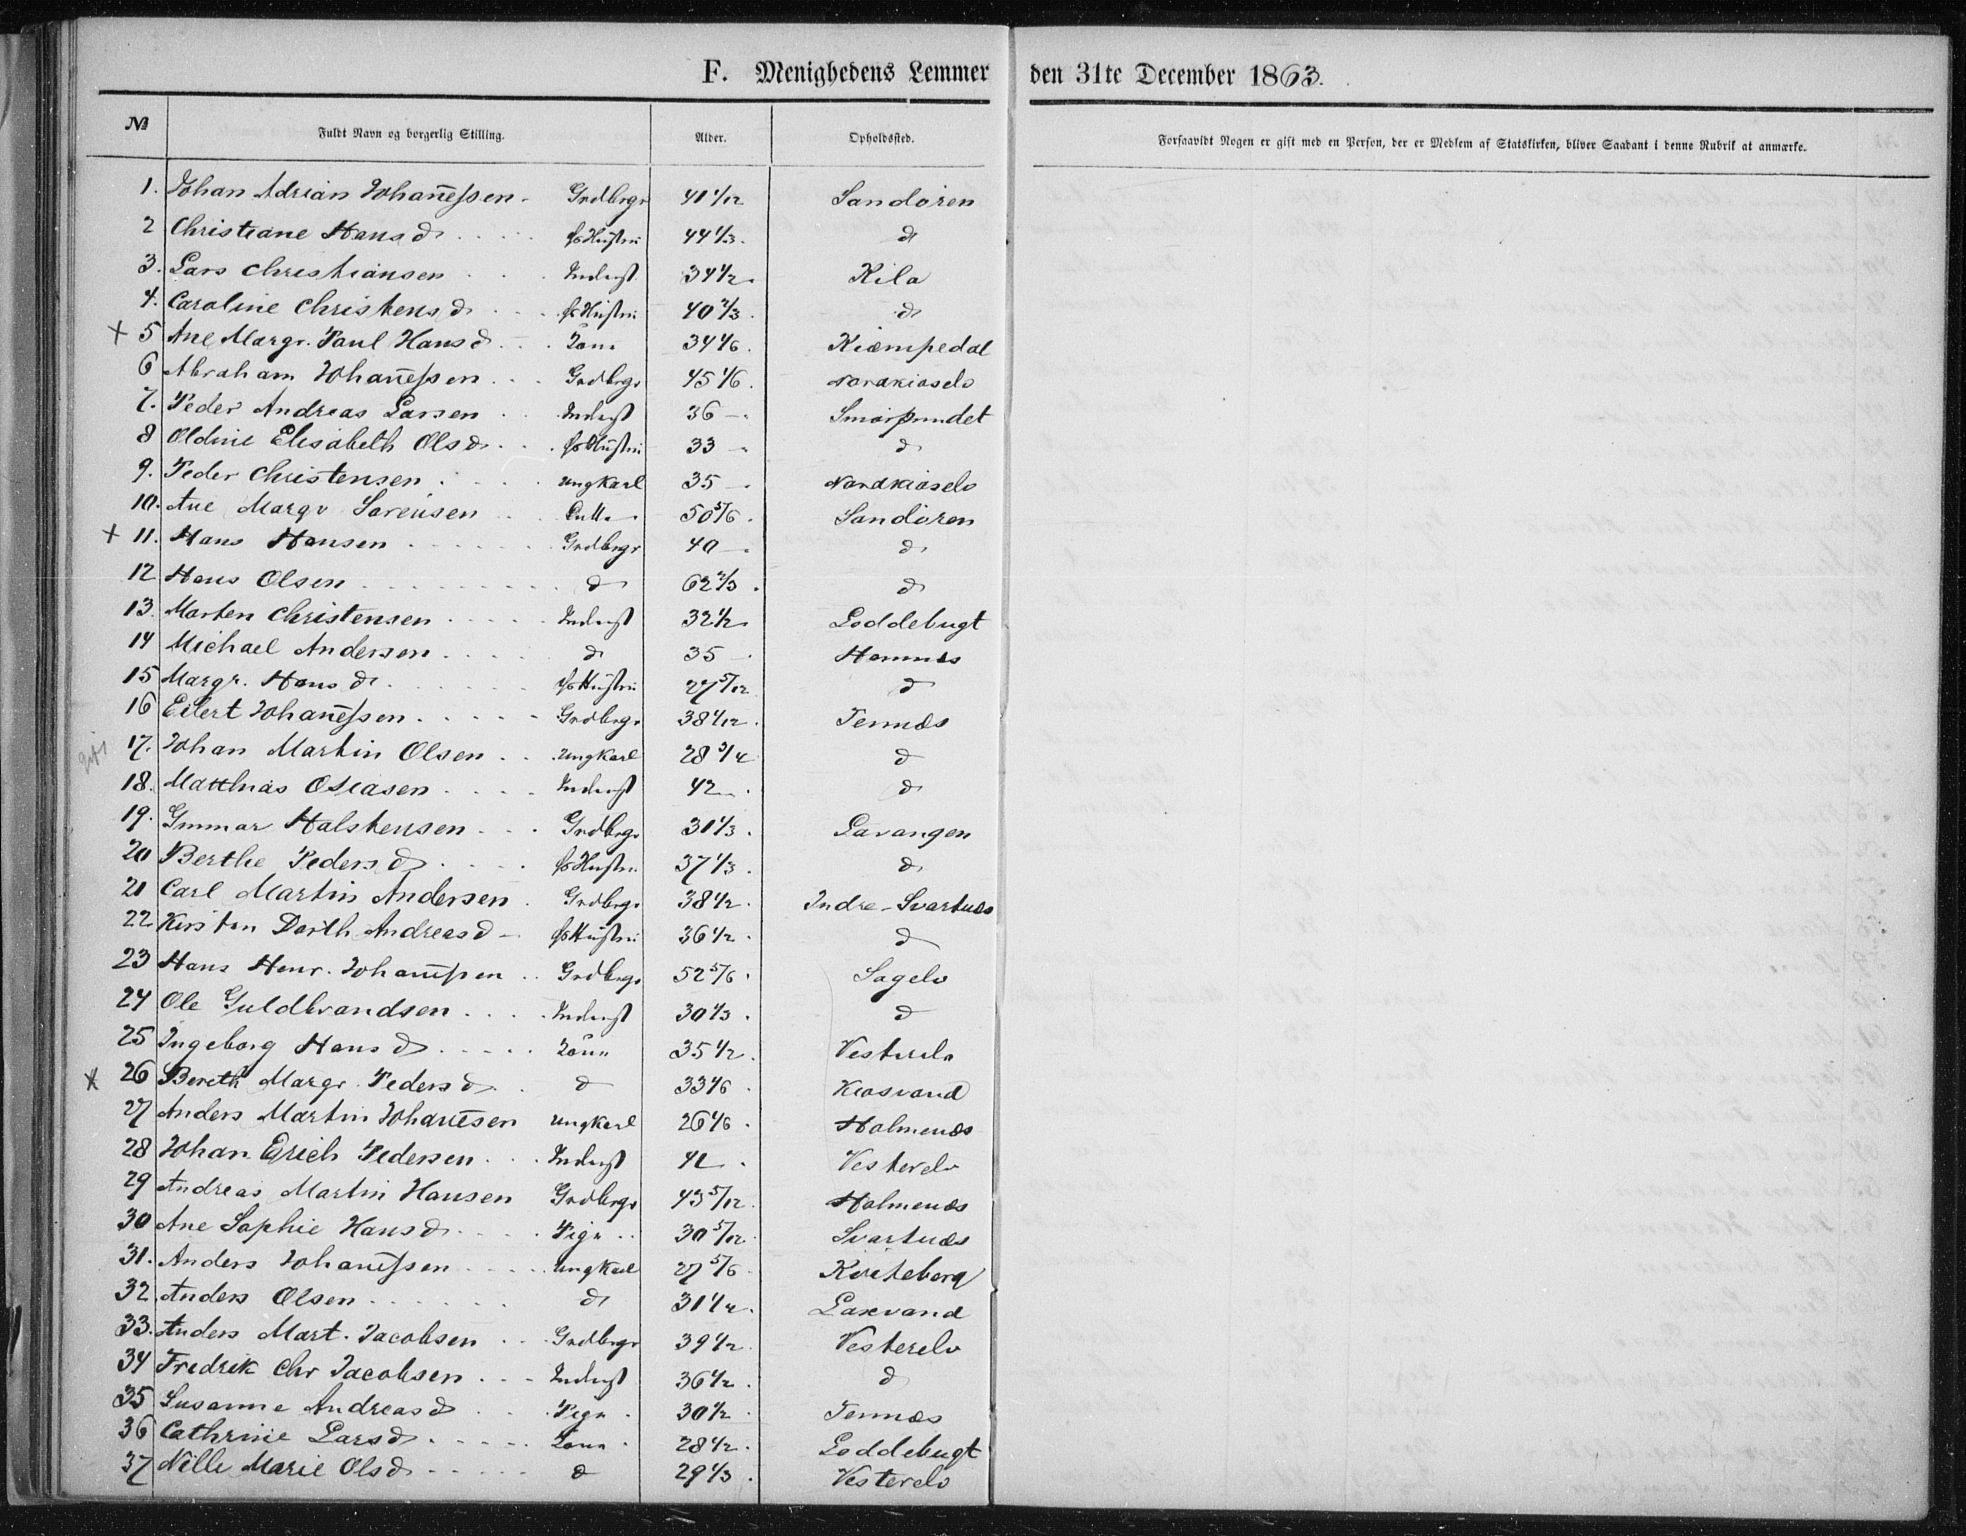 F. Menighedens Lemmer den 31te December 1863.
№ Fuldt Navn og borgerlig Stilling. Alder. Opholdssted. Forsaavidt Nogen er gift med en Person, der er Medlem af Statskirken, bliver Saadant i denne Rubrik at anmærke.
1. Johan Adrian Johanessen - Grdbrgr 41 1/12 Sandören
2 Christiane Hansd Hustru 44 1/3 d
3. Lars Christiansen Inderst 34 1/2 Kila
4. Caroline Christensd Hustru 40 2/3 d
+ 5 Ane Margr. Paul Hansd Kone 34 1/6 Kiæmpedal
6 Abraham Johanessen Grdbrgr 45 1/6 Nordkioselv
7. Peder Andreas Larsen Inderst 36 Smörpundet
8 Oldine Elisabeth Olsd Hustru 33 d
9. Peder Christensen ungkarl 35 Nordkioselv
10. Ane Margr Sörensen 50 5/6 Sandören
+ 11. Hans Hansen Grdbrgr 40 d
12 Hans Olsen d 62 2/3 d
13. Morten Christensen Inderst 32 1/2 Loddebugt
14 Michael Andersen d 35 Hamnes
15 Margr. Hansd Hustru 27 5/12 d
16 Eilert Johanessen Grdbrgr 38 1/12 Tennæs
gift 17. Johan Martin Olsen ungkarl 28 3/4 d
18. Matthias Oseasen Inderst 42 d
19. Gunnar Halstensen Grdbrgr 31 1/3 Lavangen
20 Berthe Pedersd Hustru 37 1/3 d
21 Carl Martin Andersen Grdbrgr 38 1/2 Indre-Svartnæs
22 Kirsten Dorth Andreasd Hustru 36 1/2 d
23 Hans Henr. Johanessen Grdbrgr 52 5/6 Sagelv
24 Ole Guldbrandsen Inderst 30 1/3 d
25 Ingeborg Hansd Kone 35 1/2 Vesterelv
x 26 Bereth Margr. Pedersd d 33 1/6 Kiosvand
27 Anders Martin Johanesen ungkarl 26 1/6 Holmenæs
28 Johan Erich Pedersen Inderst Vesterelv
29 Andreas Martin Hansen Grdbrgr 43 5/12 Holmenæs
30 Ane Sophie Hansd Pige 30 5/12 Svartnæs
31. Anders Johanessen ungkarl 27 5/6 Kviteberg
32. Anders Olsen d 31 1/2 Laxvand
33. Anders Mart. Jacobsen Grdbrgr 39 1/2 Vesterelv
34 Fredrik Chr Jacobsen Inderst 36 1/2 d
35 Susanne Andreasd Pige 30 1/2 Tennæs
36 Cathrine Larsd Kone 28 1/2 Loddebugt
37 Nille Marie Olsd d 29 1/3 Vesterelv